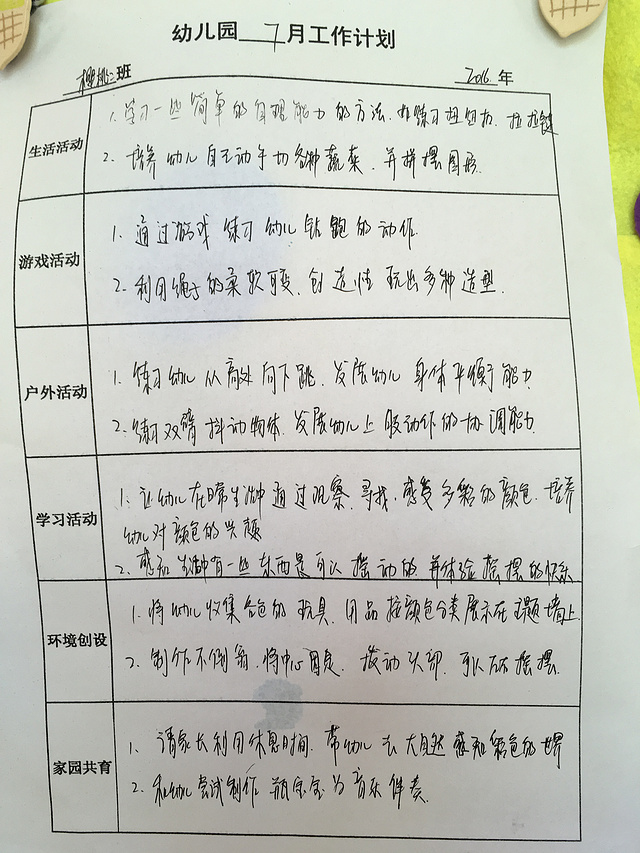 幼儿园 7 月工作计划
樱桃二班 2016 年
生活活动
1. 学习一些简单的自理能力的方法,如练习扭纽扣、拉拉链
2. 培养幼儿自己动手切各种蔬菜,并拼摆图形.
游戏活动
1. 通过游戏练习幼儿钻爬的动作.
2. 利用绳子的柔软可变、创造性玩出多种造型.
户外活动
1. 练习幼儿从高处向下跳,发展幼儿身体平衡能力
2. 练习双臂抖动物体,发展幼儿上肢动作的协调能力.
学习活动
1. 让幼儿在日常生活中通过观察、寻找、感受多彩的颜色,培养
幼儿对颜色的兴趣
2. 感知生活中有一些东西是可以摇动的,并体验摇摆的快乐
环境创设
1. 将幼儿收集各色的玩具、用品按颜色分类展示在主题墙上.
2. 制作不倒翁,将中心固定,拨动头部,可以左右摇摆.
家园共育
1. 请家长利用休息时间,带幼儿去大自然感知彩色的世界
2. 和幼儿尝试制作瓶宝宝为音乐伴奏.